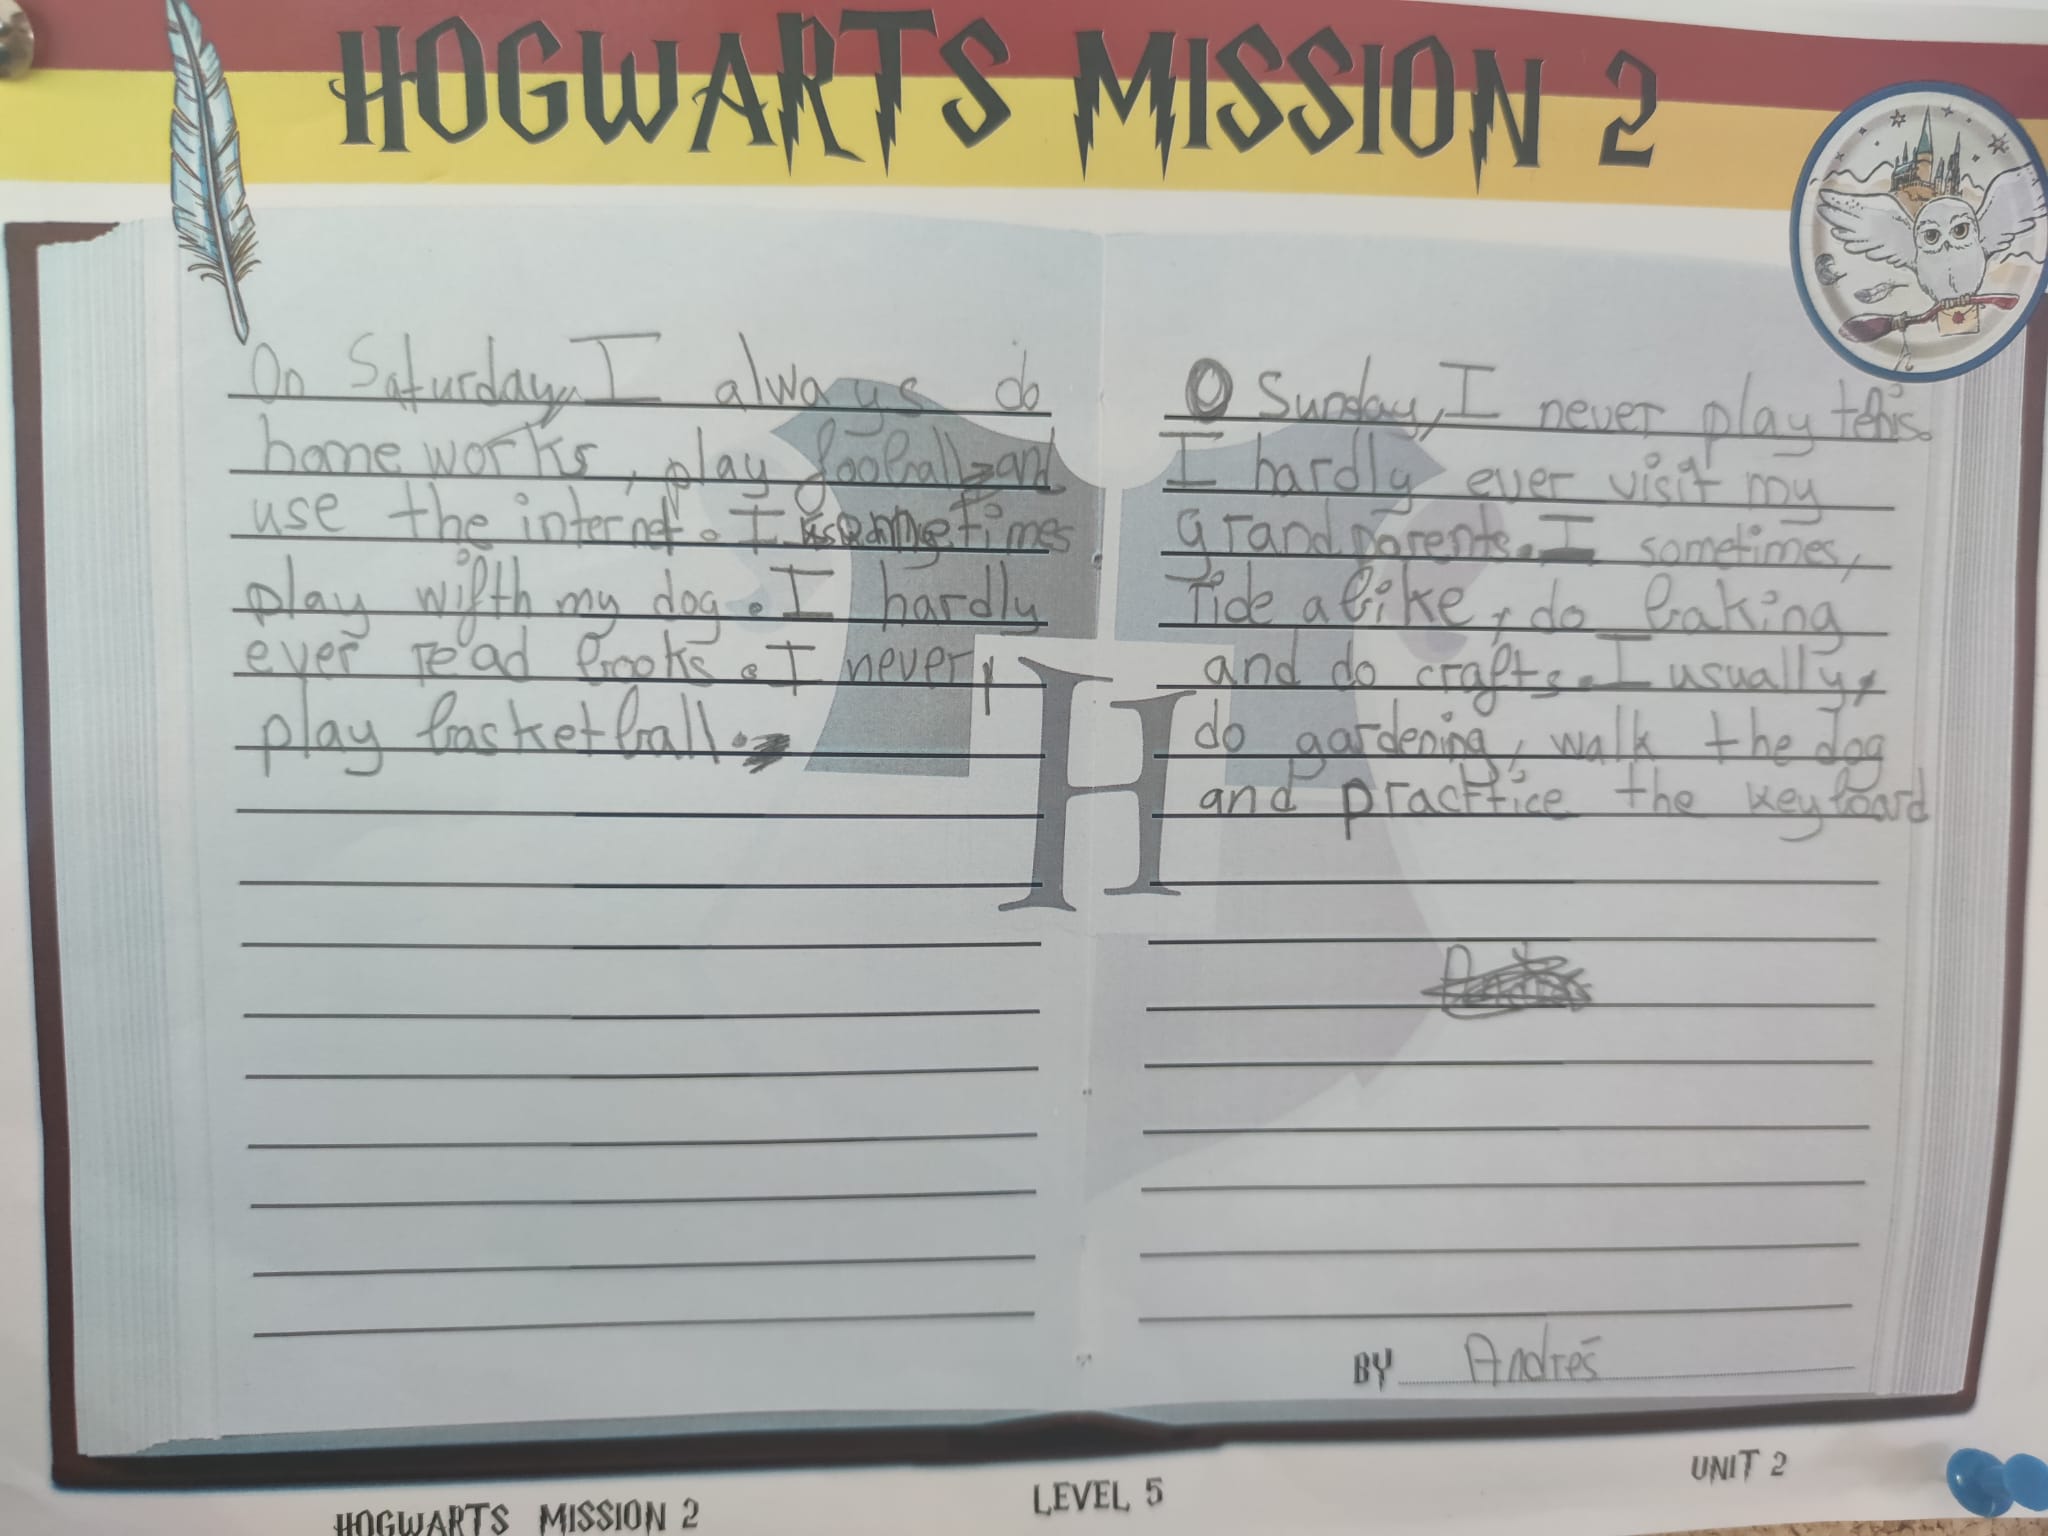 HOGWARTS MISSION 2
On Saturday, I always do
home works, play fooball and
use the internet. I sometimes
play wifth my dog. I hardly
ever read books. I never,
play basketball.
O Sunday, I never play tenis.
I hardly ever visit my
grandparents. I sometimes,
ride a bike, do baking
and do crafts. I usually,
do gardening, walk the dog
and practtice the keyboard
BY Andrés
HOGWARTS MISSION 2
LEVEL 5
UNIT 2